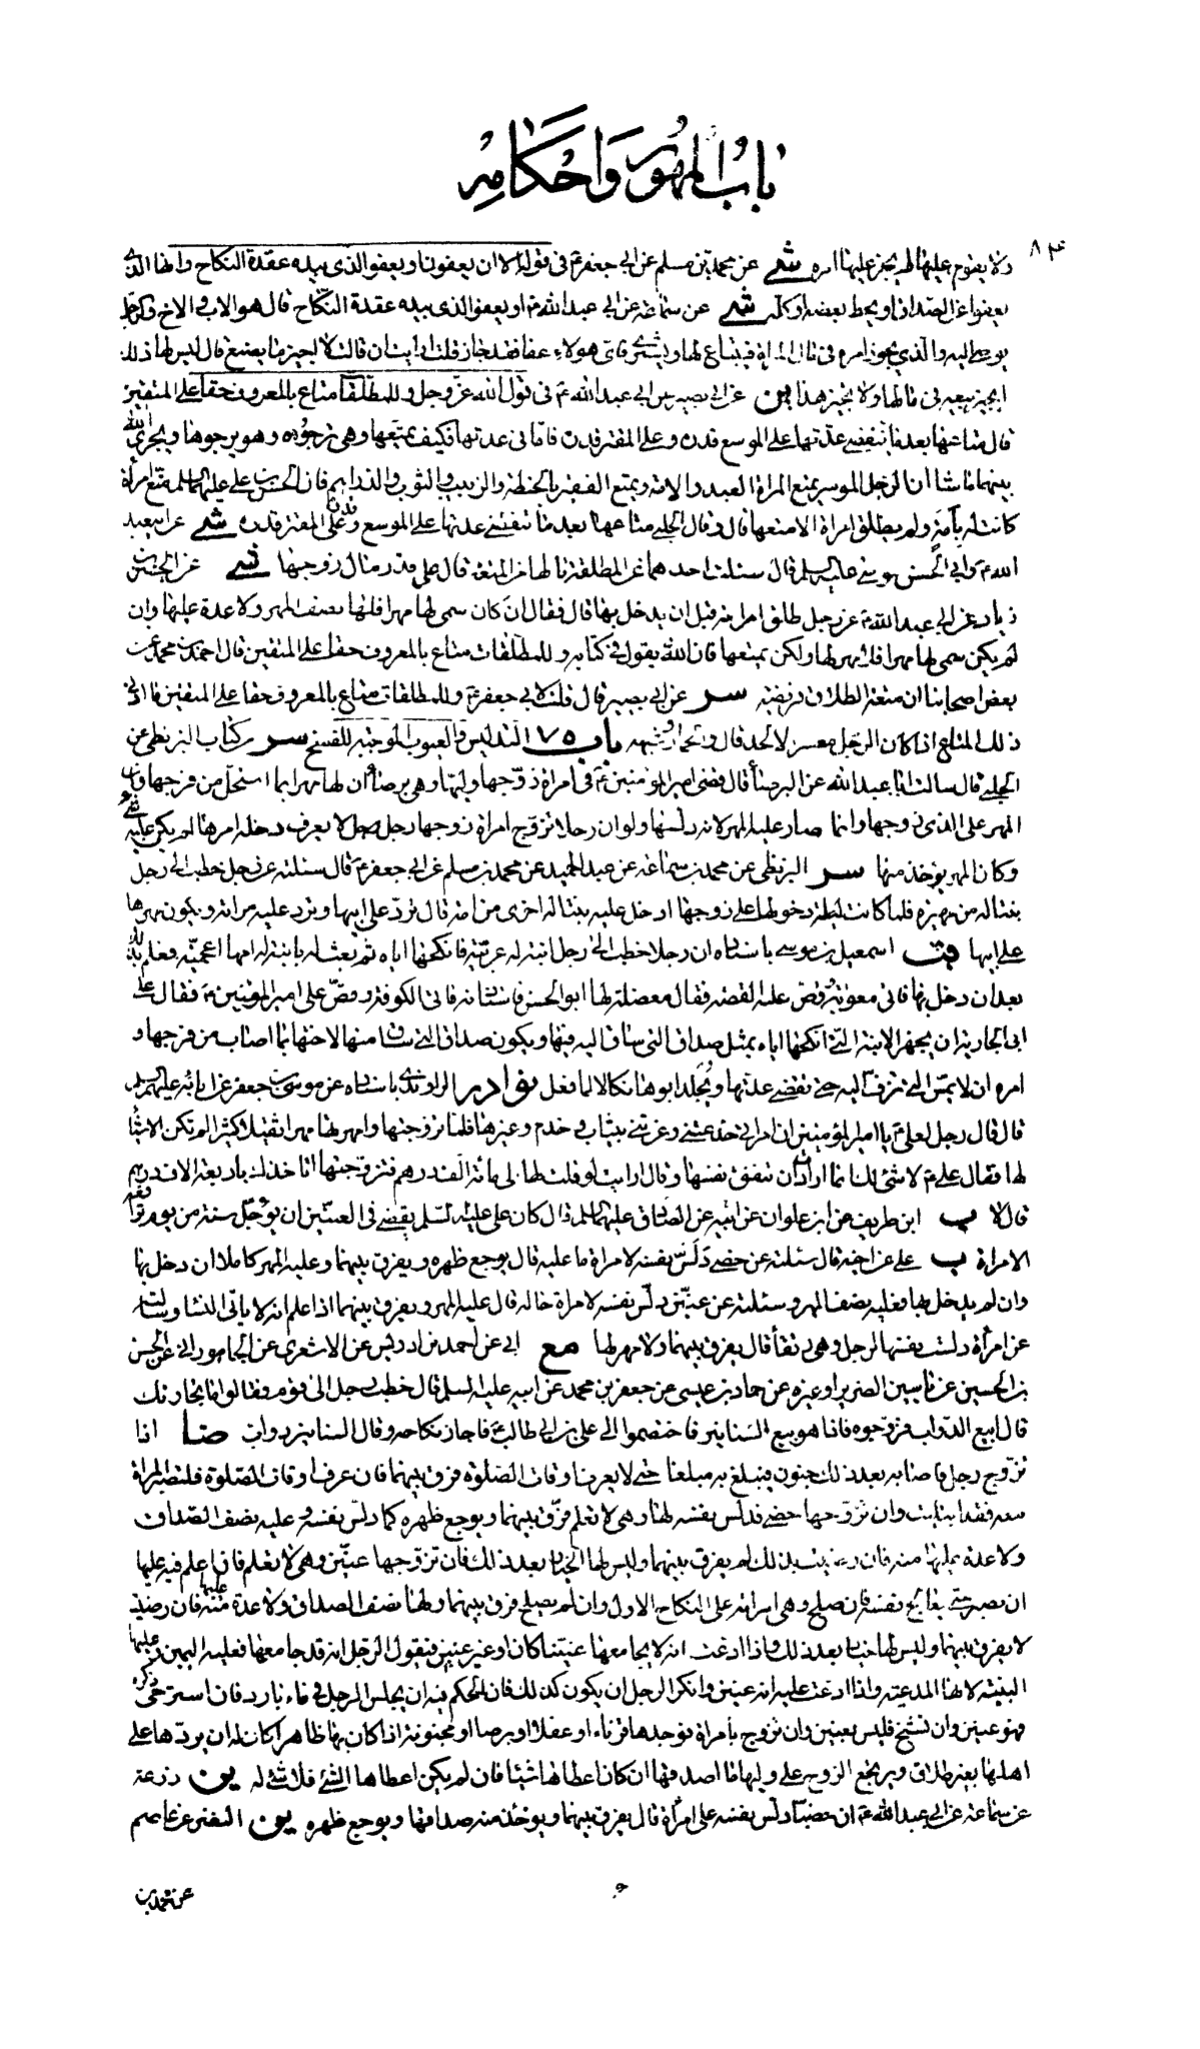 باب المهور واحكامه
٨٤
ولا يقوم عليها لم يجز عليها امره شى عن محمد بن مسلم عن ابي جعفر ع في قوله الا ان يعفون او يعفو الذي بيده عقدة النكاح وانما الذي
يعفوا عن الصداق او يحط بعضه او كله شى عن سماعة عن ابي عبد الله ع او يعفو الذي بيده عقدة النكاح قال هو الاب والاخ والرجل
يوصى اليه والذي يجوز امره في مال المراة فيبتاع لها ويشترى فاى هولاء عفا فقد جاز قلت ارايت ان قالت لا اجيز ما يصنع قال ليس لها ذلك
اتجيز بيعه في مالها ولا تجيز هذا ين عن ابي بصير عن ابي عبد الله ع في قول الله عز وجل وللمطلقات متاع بالمعروف حقا على المتقين
قال متاعها بعد ما تنقضي عدتها على الموسع قدره وعلى المقتر قدره فاما في عدتها فكيف يمتعها وهي ترجوه وهو يرجوها ويجرى الله
بينهما ما شاء ان الرجل الموسر يمتع المراة العبد والامة ويمتع الفقير بالحنطة والزبيب والثوب والدراهم فان الحسن بن على عليهما السلم متع امراة
كانت له بامة ولم يطلق امراة الا متعها قال وقال الحلبي متاعها بعد ما تنقضي عدتها على الموسع قدره وعلى المقتر قدره شى عن ابي عبد
الله ع وابي الحسن موسى عليه السلم قال سئلت احدهما عن المطلقة ما لها من المتعة قال على قدر مال زوجها شى عن الحسن بن
زياد عن ابي عبد الله ع عن رجل طلق امراته قبل ان يدخل بها قال فقال ان كان سمى لها مهرا فلها نصف المهر ولا عدة عليها وان
لم يكن سمى لها مهرا فلا مهر لها ولكن يمتعها فان الله يقول في كتابه وللمطلقات متاع بالمعروف حقا على المتقين قال احمد بن محمد عن
بعض اصحابنا ان متعة الطلاق فريضة سر عن ابي بصير قال قلت لابي جعفر ع وللمطلقات متاع بالمعروف حقا على المتقين ما ادنى
ذلك المتاع اذا كان الرجل معسر لا يجد قال وشبهه باب ١٧٥ التدليس والعيوب الموجبة للفسخ سر من كتاب البزنطي عن
الحلبي قال سالت ابا عبد الله عن البرصاء قال قضى امير المومنين ع في امراة زوجها وليها وهي برصاء ان لها مهرا بما استحل من فرجها وان
المهر على الذي زوجها وانما صار عليه المهر لانه دلسها ولو ان رجلا تزوج امراة زوجها رجل لا يعرف دخلة امرها لم يكن عليه شى
وكان المهر يوخذ منها سر البزنطي عن محمد بن سماعة عن عبد الحميد عن محمد بن مسلم عن ابي جعفر ع قال سئلته عن رجل خطب الى رجل
بنتا له من مهيرة فلما كانت ليلة دخولها على زوجها ادخل عليه بنتا له اخرى من امة قال ترد على ابيها وترد عليه مراته ويكون مهرها
على ابيها قب اسمعيل بن موسى باسناده ان رجلا خطب الى رجل ابنة له عربية فانكحها اياه ثم بعث اليه بابنة له امها اعجمية فعلم بذلك
بعد ان دخل بها فاتى معوية وقص عليه القصة فقال معضلة لها ابو الحسن فاستاذنه فاتى الكوفة وقص على امير المومنين ع فقال على
ابي الجارية ان يجهز الابنة التي انكحها اياه بمثل صداق التي ساق اليه فيها ويكون صداق التي ساق منها لاختها بما اصاب من فرجها و
امره ان لا يمس التي تزف اليه حتى تقضى عدتها ويجلد ابوها نكالا لما فعل نوادر الراوندي باسناده عن موسى بن جعفر عن ابائه عليهم السلم
قال قال رجل لعلي ع يا امير المؤمنين ان امراتي خدعتني وغرتني بثياب وخدم وغيرها فلما تزوجتها وامهرتها مهرا ثقيلا كثيرا لم تكن الاشياء
لها فقال على ع لا شى لك انما ارادت ان تنفق نفسها وقال ارايت لو قلت لها لي مائة الف درهم فتزوجتها اتاخذك باربعة الاف درهم
قال لا ب ابن طريف عن ابن علوان عن ابيه عن الصادق عليهما السلم قال كان على عليه السلم يقضى في العنين ان يوجل سنة من يوم ترافعه
الامراة ب على عن اخيه قال سئلته عن خصي دلس نفسه لامراة ما عليه قال يوجع ظهره ويفرق بينهما وعليه المهر كاملا ان دخل بها
وان لم يدخل بها فعليه نصف المهر وسئلته عن عنين دلس نفسه لامراة ما حاله قال عليه المهر ويفرق بينهما اذا علم انه لا ياتي النساء وسالته
عن امراة دلست نفسها لرجل وهي رتقاء قال يفرق بينهما ولا مهر لها مع ابي عن احمد بن ادريس عن الاشعرى عن الجاموراني عن الحسن
بن الحسين عن ياسين الضرير او غيره عن حماد بن عيسى عن جعفر بن محمد عن ابيه عليه السلم قال خطب رجل الى قوم فقالوا ما تجارتك
قال ابيع الدواب فزوجوه فاذا هو يبيع السنانير فاختصموا الى علي بن ابي طالب ع فاجاز نكاحه وقال السنانير دواب ضا اذا
تزوج رجل فاصابه بعد ذلك جنون فيبلغ به مبلغا حتى لا يعرف اوقات الصلوة فرق بينهما فان عرف اوقات الصلوة فلتصبر المراة
معه فقد ابتليت وان تزوجها خصي فدلس نفسه لها وهي لا تعلم فرق بينهما ويوجع ظهره كما دلس نفسه وعليه نصف الصداق
ولا عدة عليها منه فان رضيت بذلك لم يفرق بينهما وليس لها الخيار بعد ذلك فان تزوجها عنين وهي لا تعلم فان علم فيه عليها
ان تصبر حتى يعالج نفسه فان صلح وهي امراته على النكاح الاول وان لم يصلح فرق بينهما ولها نصف الصداق ولا عدة عليها منه فان رضيت
لا يفرق بينهما وليس لها خيار بعد ذلك واذا ادعت انه لا يجامعها عنينا كان او غير عنين فيقول الرجل انه قد جامعها فعليه اليمين وعليها
البينة لانها المدعية واذا ادعت عليه انه عنين وانكر الرجل ان يكون كذلك فان الحكم فيه ان يجلس الرجل في ماء بارد فان استرخى ذكره
فهو عنين وان تشنج فليس بعنين وان تزوج بامراة فوجدها قرناء او عفلاء او برصاء او مجنونة اذا كان بها ظاهرا كان له ان يردها على
اهلها بغير طلاق ويرجع الزوج على وليها بما اصدقها ان كان اعطاها شيئا فان لم يكن اعطاها الشئ فلا شئ له ين زرعة
عن سماعة عن ابي عبد الله ع ان خصيا دلس نفسه على امراة قال يفرق بينهما ويوخذ منه صداقها ويوجع ظهره ين النضر عن عاصم
عن محمد بن